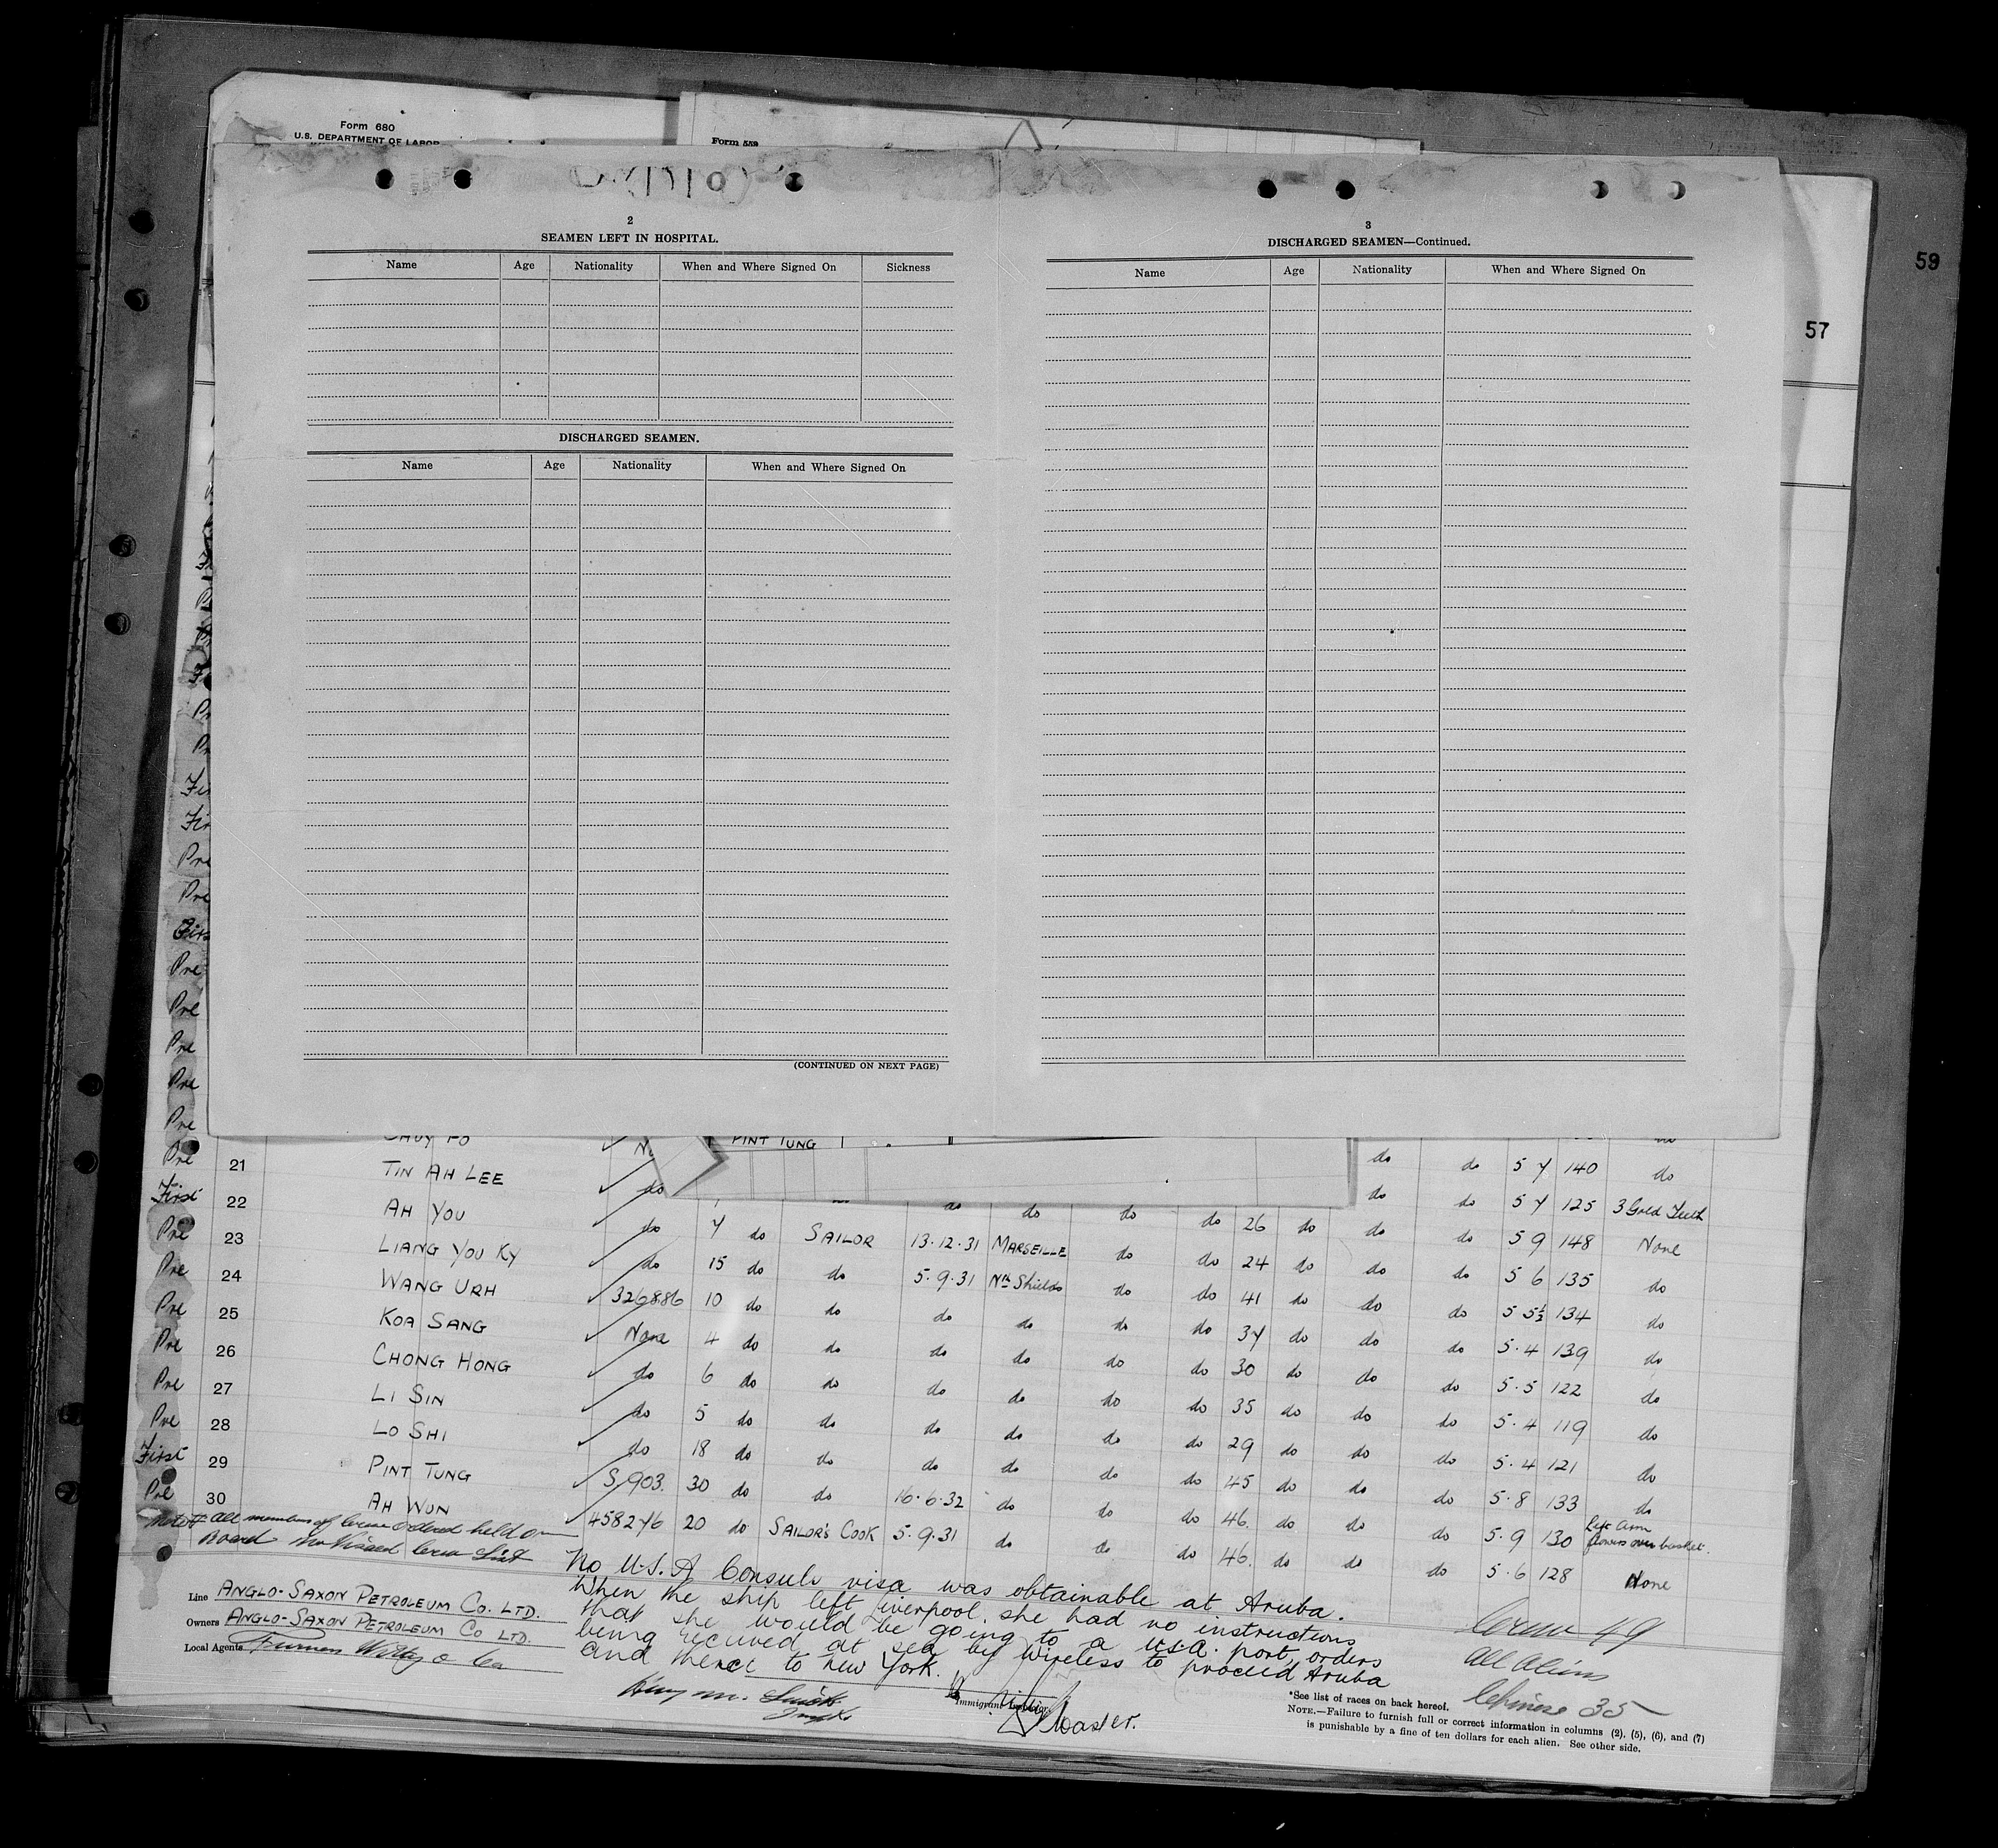 Form 680
U.S. DEPARTMENT OF LABOR
Form 559
59
57
2
SEAMEN LEFT IN HOSPITAL.
Name Age Nationality When and Where Signed On Sickness
DISCHARGED SEAMEN.
Name Age Nationality When and Where Signed On
(CONTINUED ON NEXT PAGE)
3
DISCHARGED SEAMEN—Continued.
Name Age Nationality When and Where Signed On
Pre
Pre
First
Pre
Pre
Pre
Pre
Pre
PINT TUNG
Pre 21 TIN AH LEE do do do 5 7 140 do
First 22 AH YOU do 7 do SAILOR 13.12.31 MARSEILLE do do 26 do do do 5 7 125 3 Gold Teeth
Pre 23 LIANG YOU KY do 15 do do 5.9.31 Nth Shields do do 24 do do do 5 9 148 None
Pre 24 WANG URH 326886 10 do do do do do do 41 do do do 5 6 135 do
Pre 25 KOA SANG None 4 do do do do do do 37 do do do 5 5½ 134 do
Pre 26 CHONG HONG do 6 do do do do do do 30 do do do 5.4 139 do
Pre 27 LI SIN do 5 do do do do do do 35 do do do 5.5 122 do
Pre 28 LO SHI do 18 do do do do do do 29 do do do 5.4 119 do
First 29 PINT TUNG S/903. 30 do do 16.6.32 do do do 45 do do do 5.4 121 do
Pre 30 AH WUN 458276 20 do SAILOR'S COOK 5.9.31 do do do 46. do do do 5.8 133 do
46. do do 5.9 130 Left Arm flowers over basket.
5.6 128 None
Note: All members of crew ordered held on
Board no visaed crew list
No U.S.A Consuls visa was obtainable at Aruba.
When the ship left Liverpool, she had no instructions
that she would be going to a U.S.A. port, orders
being received at sea by wireless to proceed Aruba
and thence to New York.
Line ANGLO-SAXON PETROLEUM CO. LTD.
Owners ANGLO-SAXON PETROLEUM CO LTD.
Local Agents Furness Withy & Co
Immigrant Inspector
Master.
Crew 49
All Aliens
Chinese 35
*See list of races on back hereof.
NOTE.—Failure to furnish full or correct information in columns (2), (5), (6), and (7)
is punishable by a fine of ten dollars for each alien. See other side.